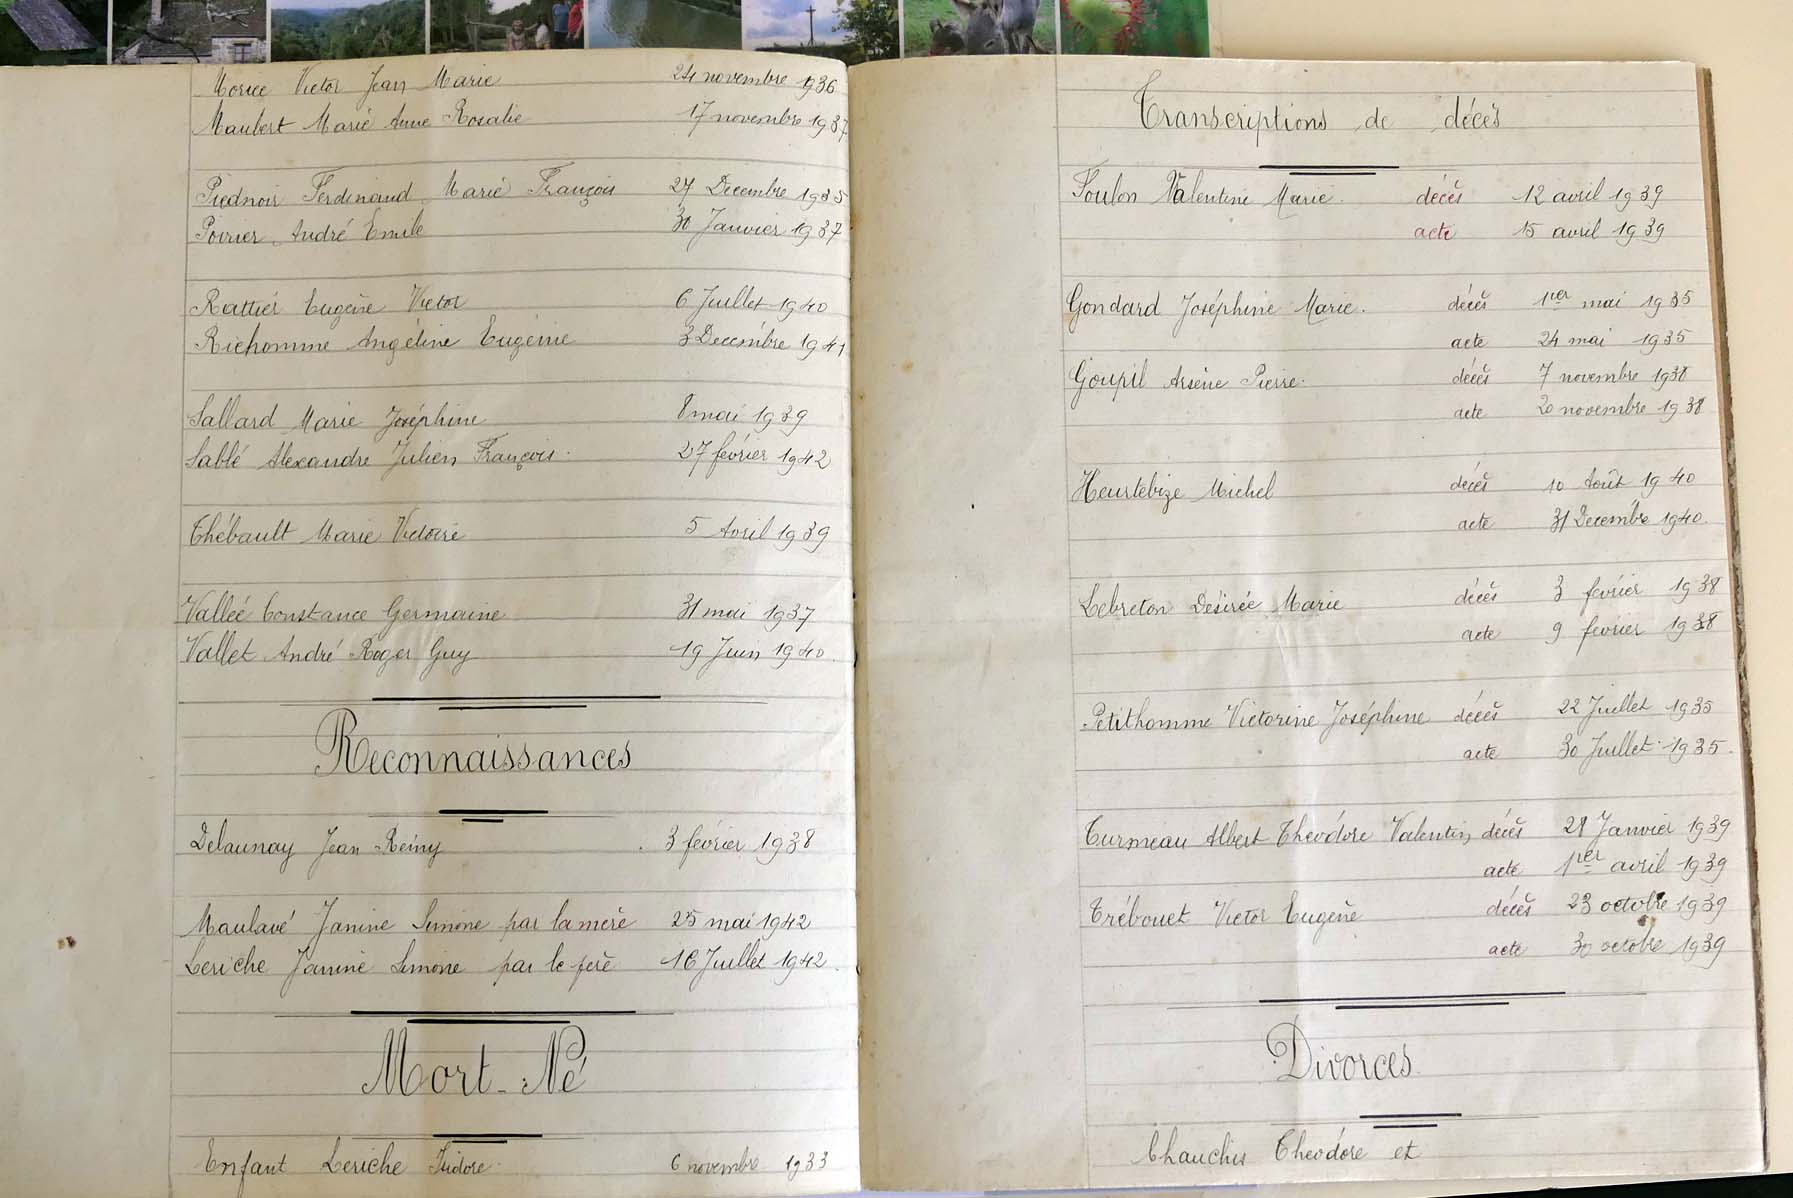 Morice Victor Jean Marie 24 novembre 1936
Maubert Marie Anne Rosalie 17 novembre 1937
Piednoir Ferdinand Marie François 27 Decembre 1935
Poirier André Emile 30 Janvier 1937
Rattier Eugène Victor 6 Juillet 1940
Richomme Angéline Eugénie 3 Decémbre 1941
Sallard Marie Joséphine 8 mai 1939
Sablé Alexandre Julien François. 27 février 1942
Thébault Marie Victoire 5 Avril 1939
Vallée Constance Germaine 31 mai 1937
Vallet André Roger Guy 19 Juin 1940.
Reconnaissances
Delaunay Jean Rémy 3 février 1938
Maulavé Janine Simone par la mère 25 mai 1942
Leriche Janine Simone par le père 16 Juillet 1942.
Mort-Né
Enfant Leriche Isidore. 6 novembre 1933
Transcriptions de décès
Foulon Valentine Marie. décès 12 avril 1939
acte 15 avril 1939
Gondard Joséphine Marie. décès 1er mai 1935
acte 24 mai 1935
Goupil Arsène Pierre. décès 7 novembre 1938
acte 20 novembre 1938
Heurtebize Michel décès 10 Août 1940
acte 31 Decémbre 1940.
Lebreton Désirée Marie décès 3 février 1938
acte 9 février 1938
Petithomme Victorine Joséphine décès 22 Juillet 1935
acte 30 Juillet 1935.
Turmeau Albert Théodore Valentin décès 28 Janvier 1939
acte 1er avril 1939
Trébouet Victor Eugène décès 23 octobre 1939
acte 30 octobre 1939
Divorces
Chauchis Théodore et